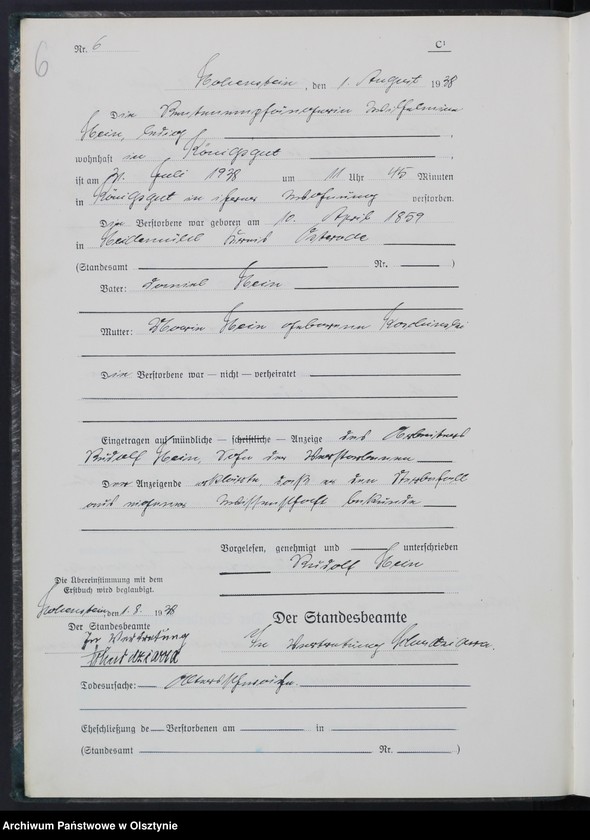 6
Nr. 6
C¹
Hohenstein, den 1. August 1938
Die Rentenempfängerin Wilhelmine
Hein, ledig,
wohnhaft in Königsgut,
ist am 31. Juli 1938 um 11 Uhr 45 Minuten
in Königsgut in ihrer Wohnung verstorben.
Die Verstorbene war geboren am 10. April 1859
in Kreis Osterode
(Standesamt Nr. )
Vater: Daniel Hein
Mutter: Hein geborene
Die Verstorbene war — nicht — verheiratet
Eingetragen auf mündliche — schriftliche — Anzeige des Arbeiters
Rudolf Hein, Sohn der Verstorbenen
Der Anzeigende erklärte, daß er den Sterbefall
aus eigener Wissenschaft bekunde
Vorgelesen, genehmigt und unterschrieben
Rudolf Hein
Die Übereinstimmung mit dem
Erstbuch wird beglaubigt.
Hohenstein, den 1. 8. 1938
Der Standesbeamte
Der Standesbeamte
In Vertretung
In Vertretung
Todesursache: Altersschwäche.
Eheschließung de Verstorbenen am in
(Standesamt Nr. )
Archiwum Państwowe w Olsztynie